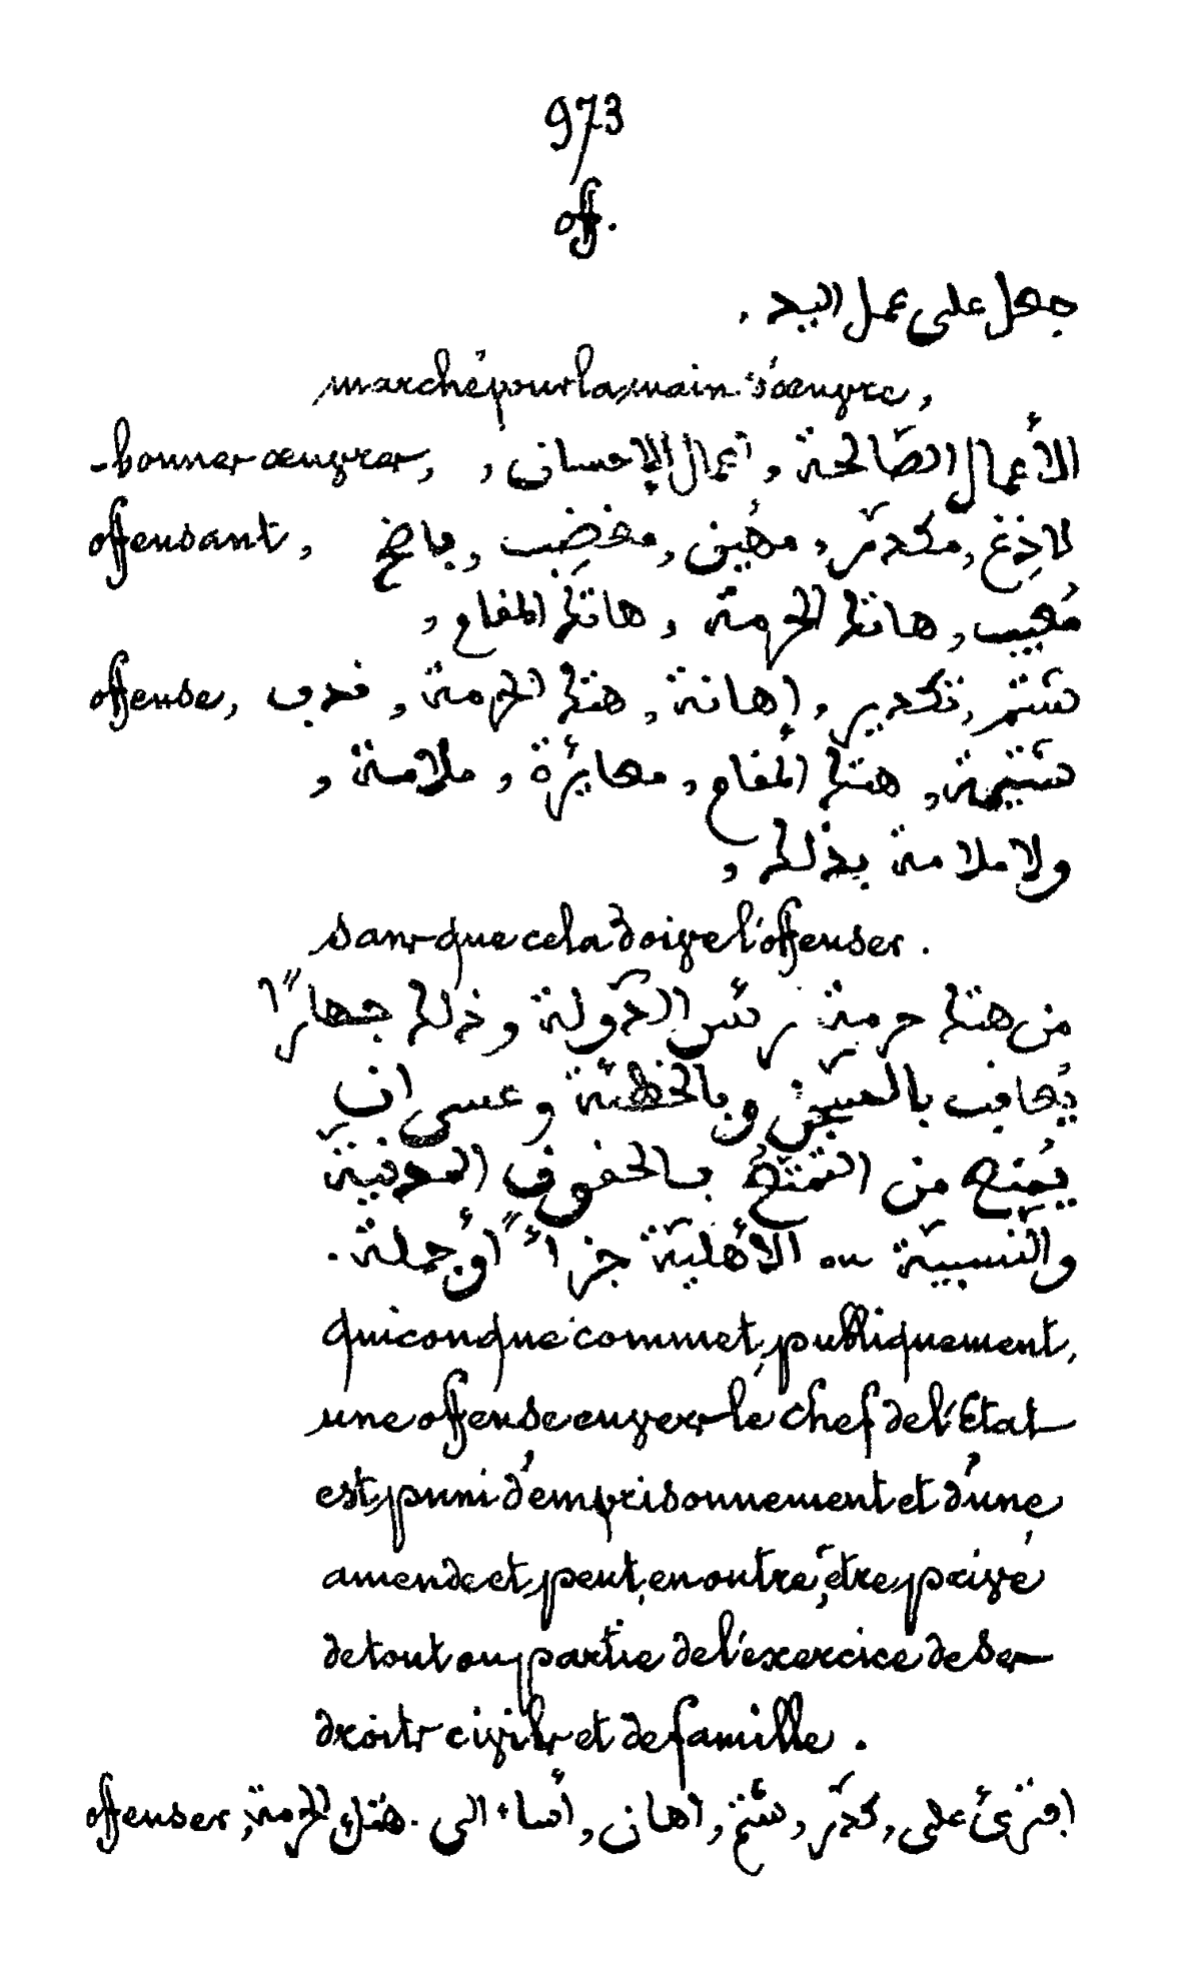 973
off.
جعل على عمل اليد ,
marché pour la main d'œuvre,
-bonnes œuvres, الأعمال الصّالحة, أعمال الإحسان,
offensant, لاذِغ, مكدّر, مهُين, مغضِب,
مُعيب, هاتك الحرمة, هاتك المقام,
offense, شتم, تكدير, إهانة, هتك الحرمة, قدف
شتيمة, هتك المقام, معايرة, ملامسة,
ولا ملامة بذلك,
sans que cela doive l'offenser.
من هتك حرمة رئس الدّولة وذلك جهارًا
يُعاقب بالسّجن وبالخطئة وعسى ان
يُمنع من التّمتّع بالحقوق المدنيّة
والنّسبيّة ou الأهليّة جزاءً أو جملة.
quiconque commet, publiquement,
une offense envers le chef de l'État
est puni d'emprisonnement et d'une
amende et peut, en outre, être privé
de tout ou partie de l'exercice de ses
droits civils et de famille.
offenser, افترئ على, كدّر, شتم, اهان, أساء الى. هتك الحرمة,